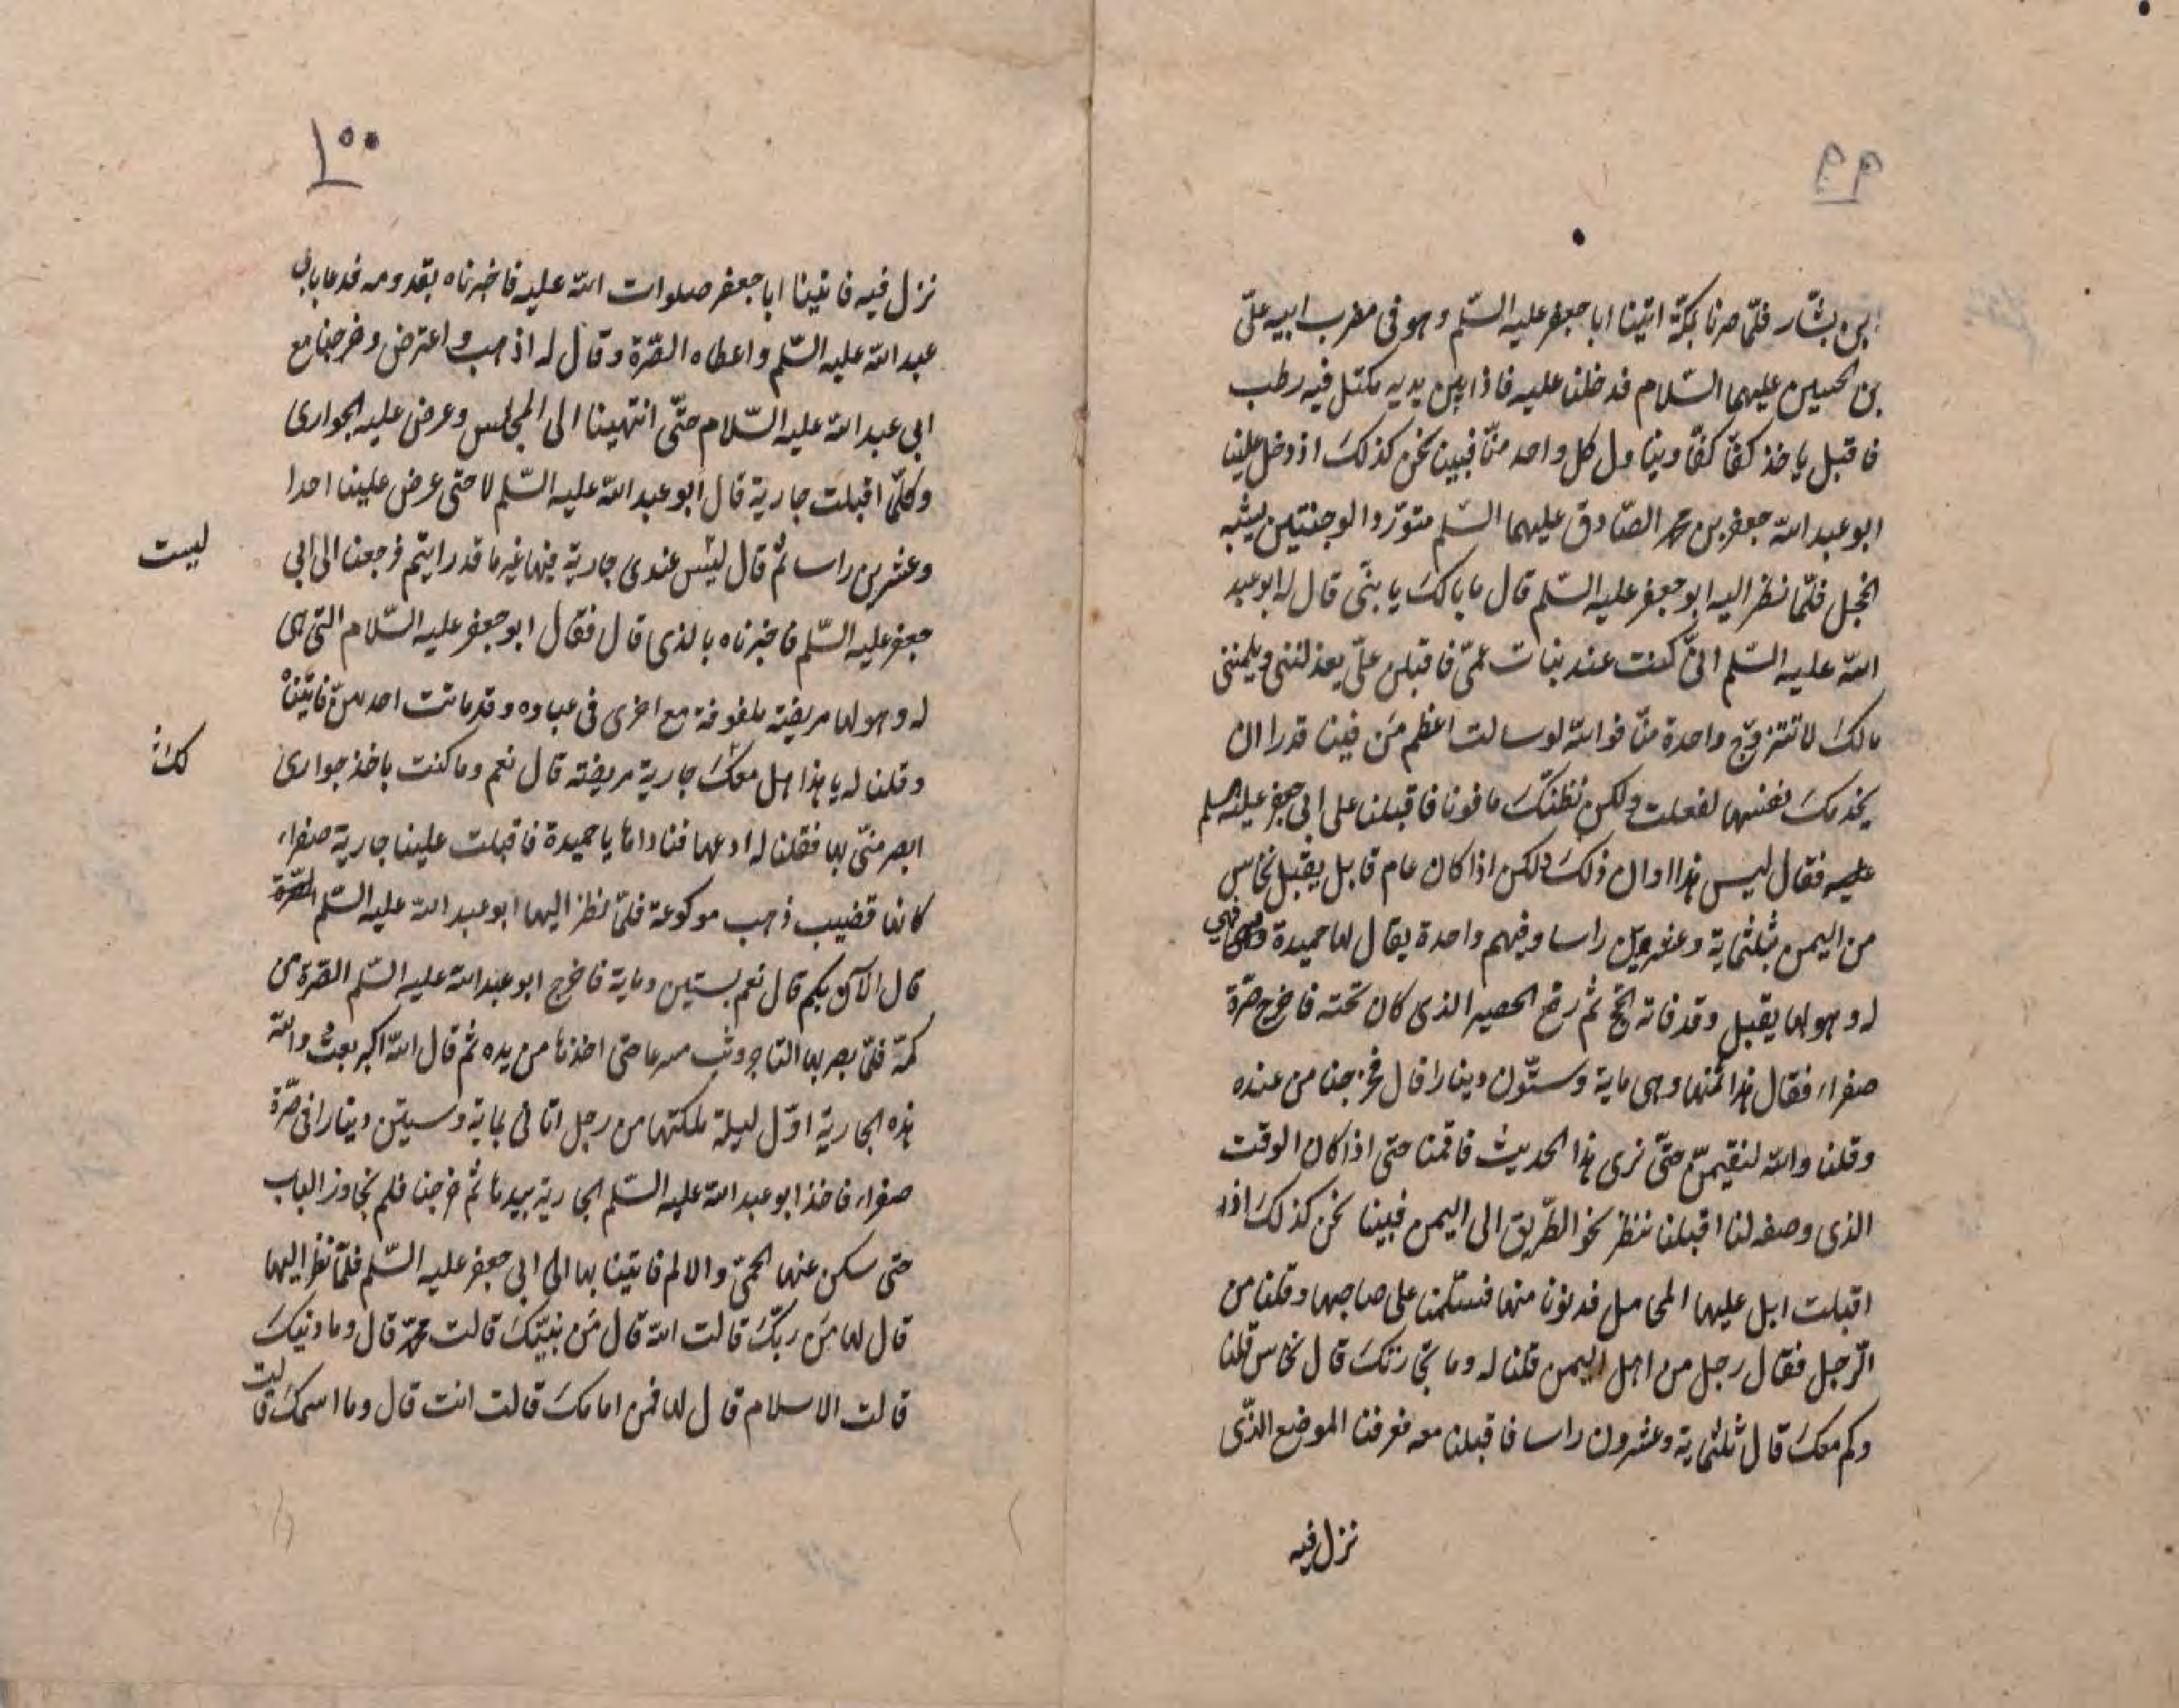 ٩٩
بن بشار فلمّا صرنا بمكّة اتينا ابا جعفر عليه السّلم وهو فى مضرب ابيه علىّ
بن الحسين عليهما السّلام فدخلنا عليه فاذا بين يديه مكتل فيه رطب
فاقبل ياخذ كفّا كفّا ويناول كل واحد منّا فبينا نحن كذلك اذ دخل علينا
ابو عبد اللّه جعفر بن محمد الصّادق عليهما السّلم متورّد الوجنتين يشبه
الخجل فلمّا نظر اليه ابو جعفر عليه السّلم قال ما بالك يا بنّى قال له ابو عبد
اللّه عليه السّلم انّى كنت عند بنات عمّى فاقبلن علىّ يعذلننى ويلمننى
مالك لا تتزوّج واحدة منّا فو اللّه لو سالت اعظم من فينا قدرا ان
يخدمك نفسها لفعلت ولكن نظنّك مافونا فاقبلنا على ابى جعفر عليه السلم
فقال ليس هذا اوان ذلك ولكن اذا كان عام قابل يقبل نخاس
من اليمن بثلثماية وعشرين راسا وفيهم واحدة يقال لها حميدة فهى
له وهو لها يقبل وقد فاته الحج ثم رفع الحصير الذى كان تحته فاخرج صرّة
صفراء فقال هذا ثمنها وهى ماية وستّون دينارا قال فخرجنا من عنده
وقلنا واللّه لنقيمنّ حتّى نرى هذا الحديث فاقمنا حتى اذا كان الوقت
الذى وصفه لنا اقبلنا ننظر نحو الطّريق الى اليمن فبينا نحن كذلك اذ
اقبلت ابل عليها المحامل فدنونا منها فسلّمنا على صاحبها وقلنا من
الرّجل فقال رجل من اهل اليمن قلنا له وما تجارتك قال نخاس قلنا
وكم معك قال ثلثماية وعشرون راسا فاقبلنا معه فعرفنا الموضع الذّى
نزل فيه
١٠٠
نزل فيه فاتينا ابا جعفر صلوات اللّه عليه فاخبرناه بقدومه فدعا بابى
عبد اللّه عليه السّلم واعطاه الصّرة وقال له اذهب واعترض وخرجنا مع
ابى عبد اللّه عليه السّلام حتّى انتهينا الى المجلس وعرض عليه الجوارى
وكلّما اقبلت جارية قال ابو عبد اللّه عليه السّلم لا حتى عرض علينا احدا
وعشرين راسا ثم قال ليس عندى جارية فيها غير ما قد رايتم فرجعنا الى ابى
ليست
جعفر عليه السّلم فاخبرناه بالذى قال فقال ابو جعفر عليه السّلام التى هى
له وهو لها مريضة ملفوفة مع اخرى فى عباوه وقد ماتت احدهنّ فاتيناه
وقلنا له يا هذا هل معك جارية مريضة قال نعم وما كنت باخذ جوارى
ابصر منّى بها فقلنا له ادعها فناداها يا حميدة فاقبلت علينا جارية صفراء
كانها قضيب ذهب موكوعة فلمّا نظر اليها ابو عبد اللّه عليه السّلم
قال الآن بكم قال نعم بستين وماية فاخرج ابو عبد اللّه عليه السّلم الصّرة من
كمّه فلمّا بصر بها التاجر وثب مسرعا حتى اخذها من يده ثم قال اللّه اكبر بعث واللّه
هذه الجارية اوّل ليلة ملكتها من رجل اتانى بماية وستين دينارا فى صّرة
صفراء فاخذ ابو عبد اللّه عليه السّلم الجارية بيدها ثم خرجنا فلم نجاوز الباب
حتى سكن عنها الحمىّ والالم فاتينا بها الى ابى جعفر عليه السّلم فلمّا نظر اليها
قال لها من ربّك قالت اللّه قال من نبيّك قالت محمد قال وما دينك
قالت الاسلام قال لها فمن امامك قالت انت قال وما اسمك قالت